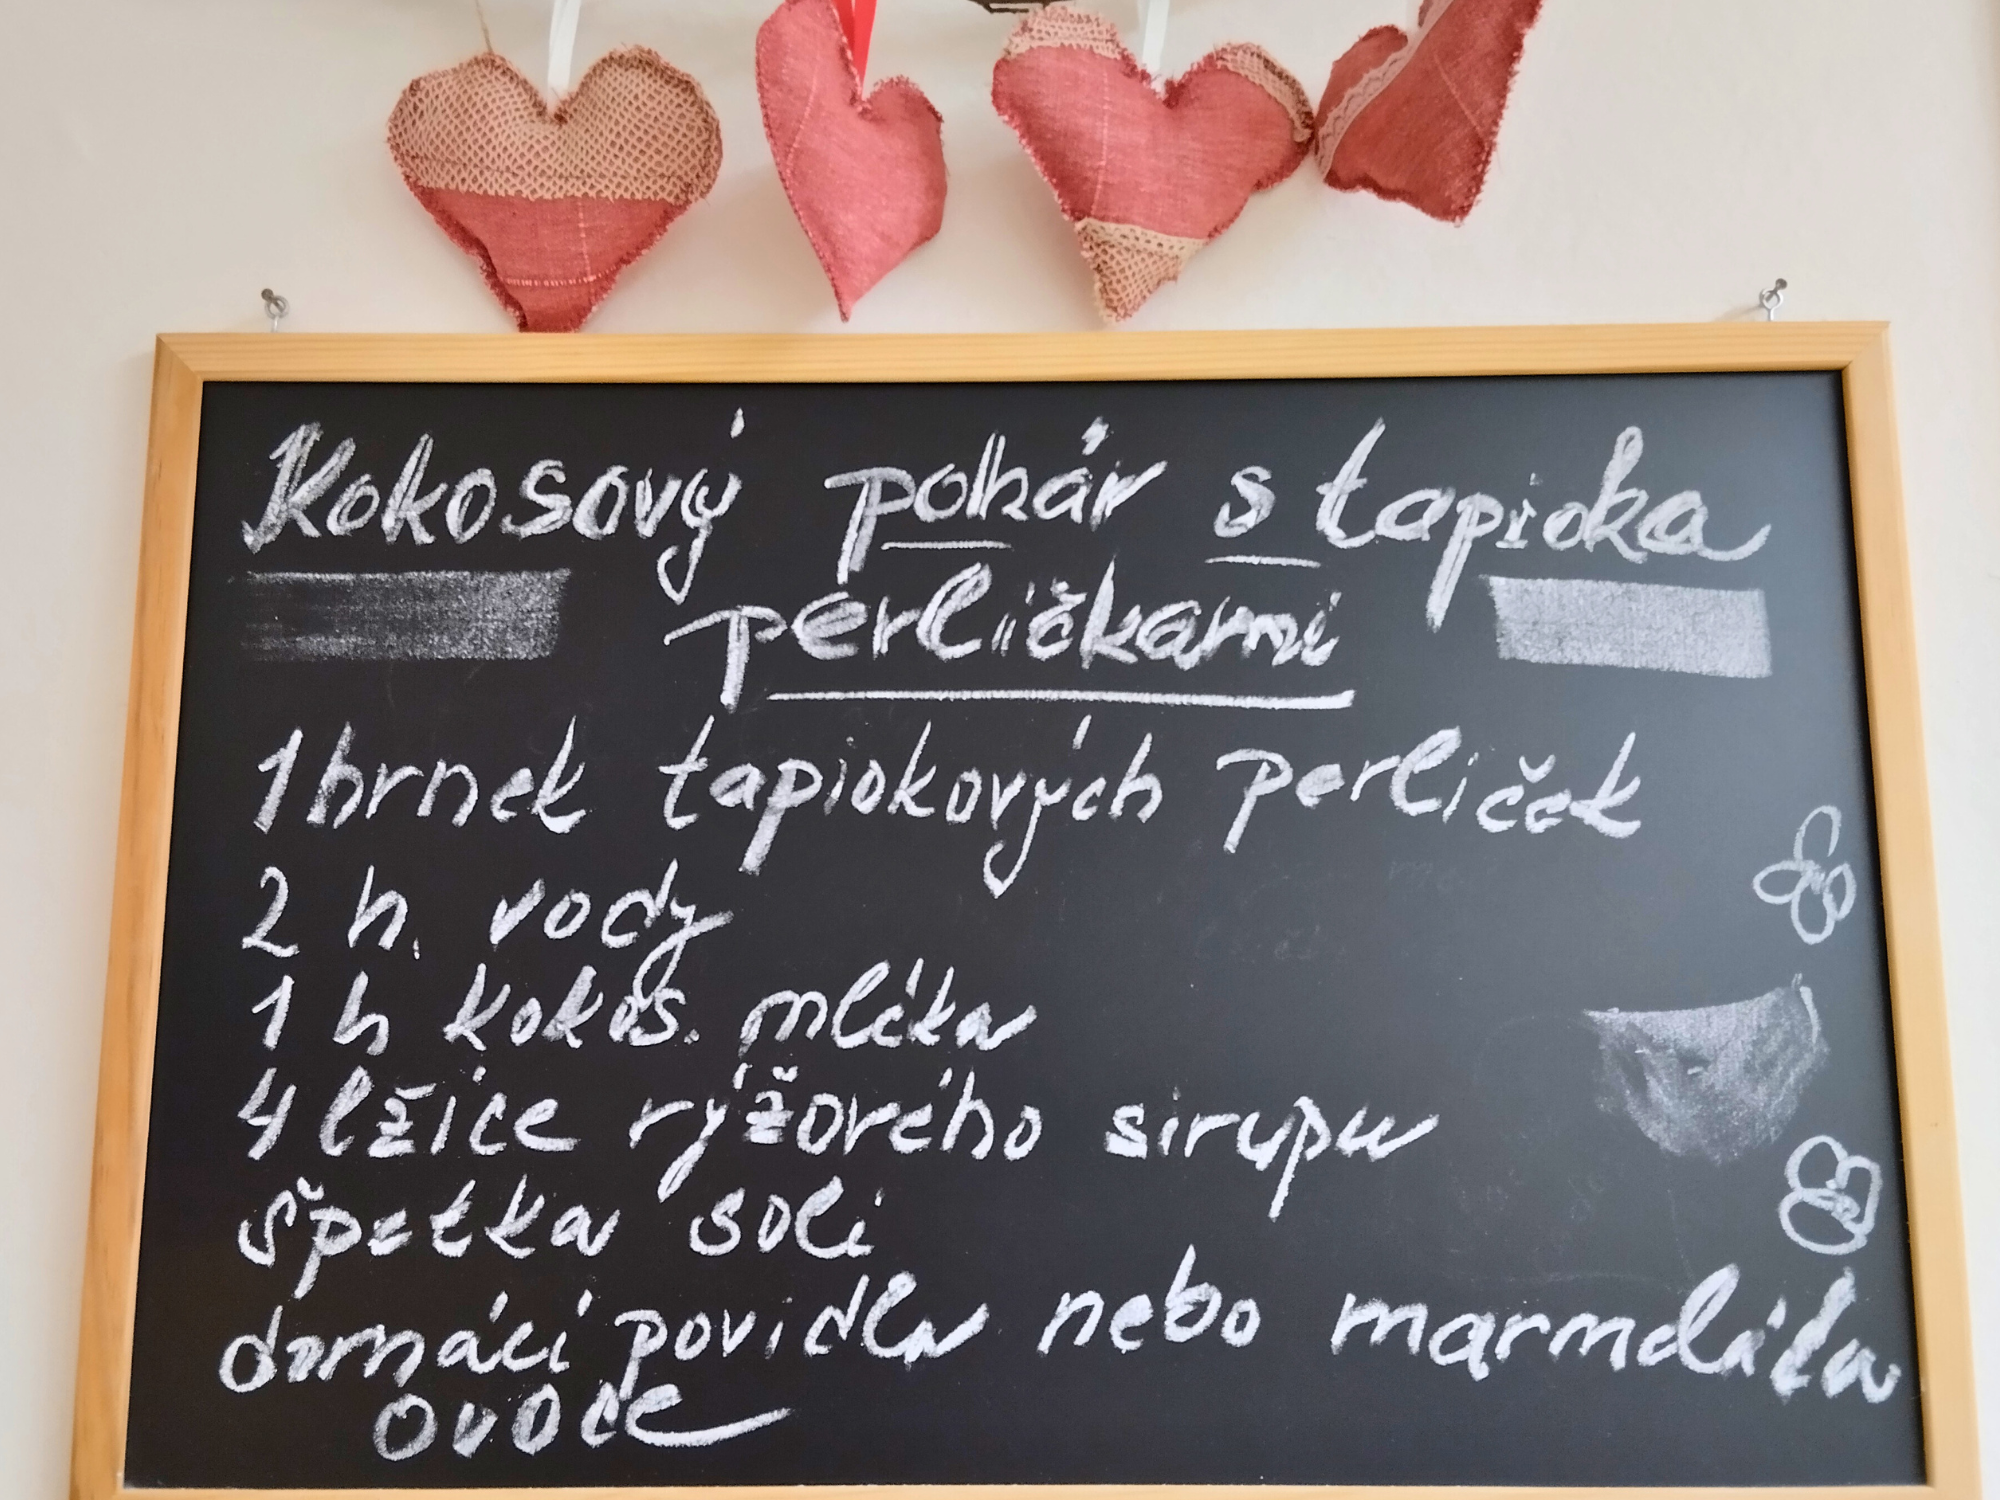 Kokosový pohár s tapioka
perličkami
1 hrnek tapiokových perliček
2 h. vody
1 h kokos. mléka
4 lžíce rýžového sirupu
špetka soli
domácí povidla nebo marmdláda
ovoce